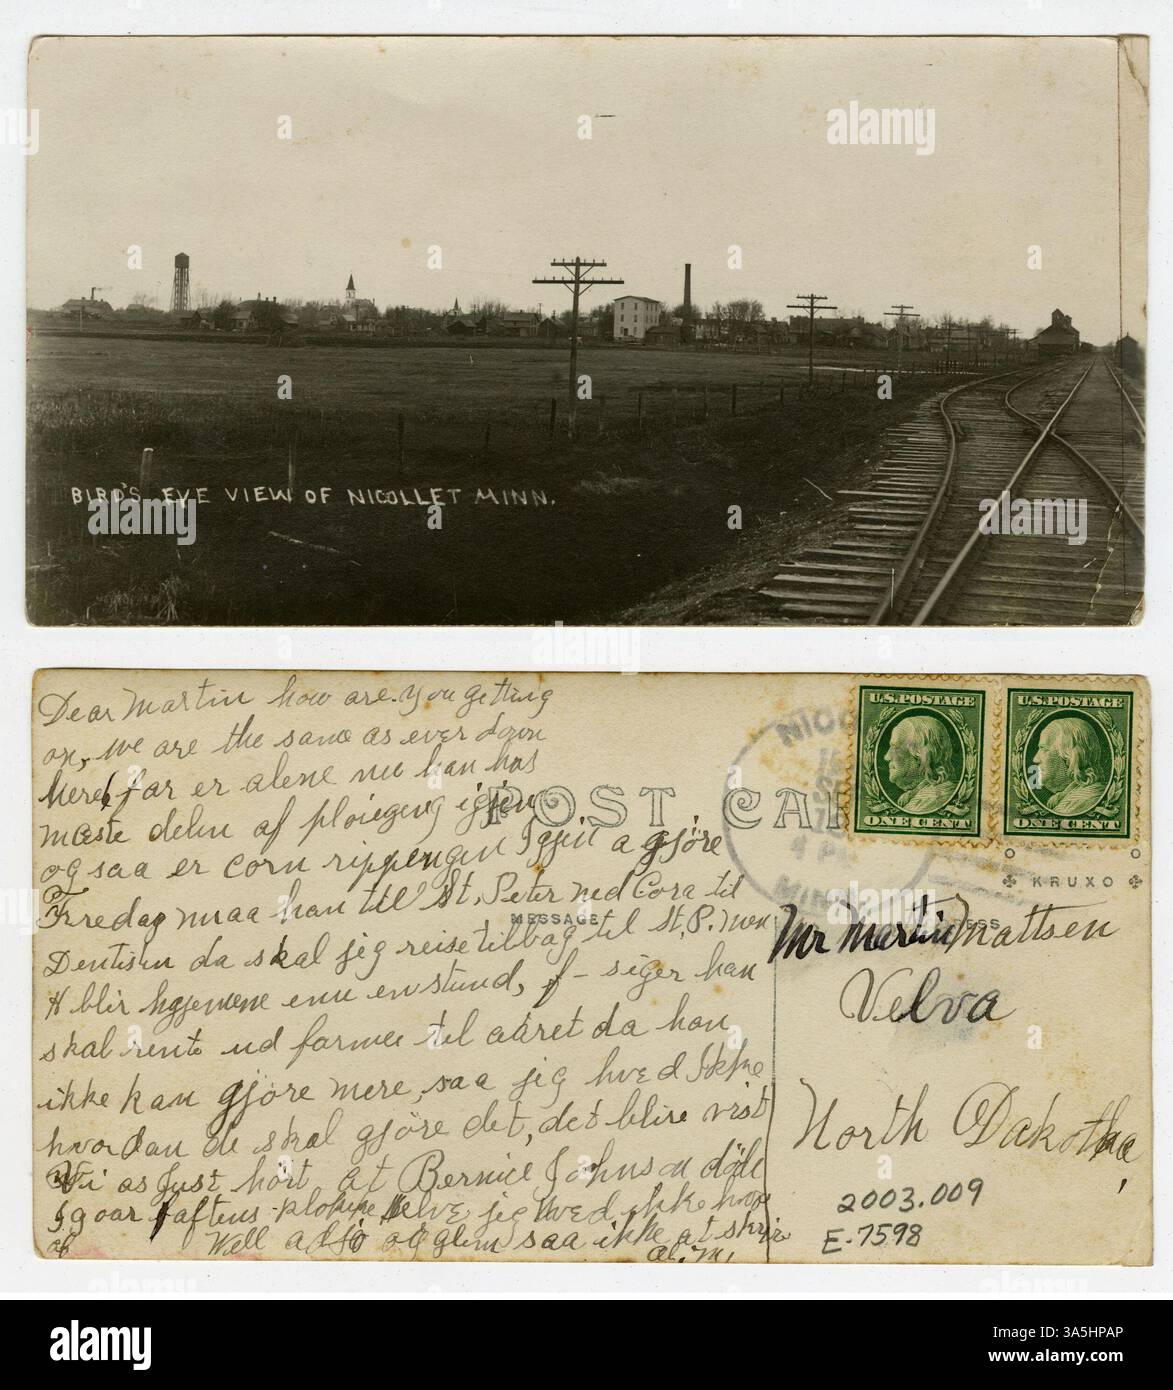 BIRD'S EYE VIEW OF NICOLLET MINN.
Dear Martin how are you getting
on, we are the same as ever down
here, far er alene nu han has
mæste delen af ploieging igjen
og saa er corn rippengen Igjin a gjöre
Fredag maa han til St. Peter med Cora til
Dentisen da skal jeg reise tilbag til St. P. men
H blir hjemme enu en stund, f - siger han
skal rente ud farmen til aaret da han
ikke kan gjöre mere, saa jeg hved Ikke
hvordan de skal gjöre det, det blire vist
Vi as Just hört at Bernice Johnson döde
Igaar aftens klokken elve jeg hved ikke hva
af Well adjö og glem saa ikke at skriv
Al. M.
POST CAR
MESSAGE
NICO
4 P
MINN
U.S. POSTAGE
ONE CENT
U.S. POSTAGE
ONE CENT
KRUXO
ESS
Mr Martin Mattsen
Velva
North Dakota
2003.009
E-7598
alamy
Image ID: 3A5HPAP
www.alamy.com